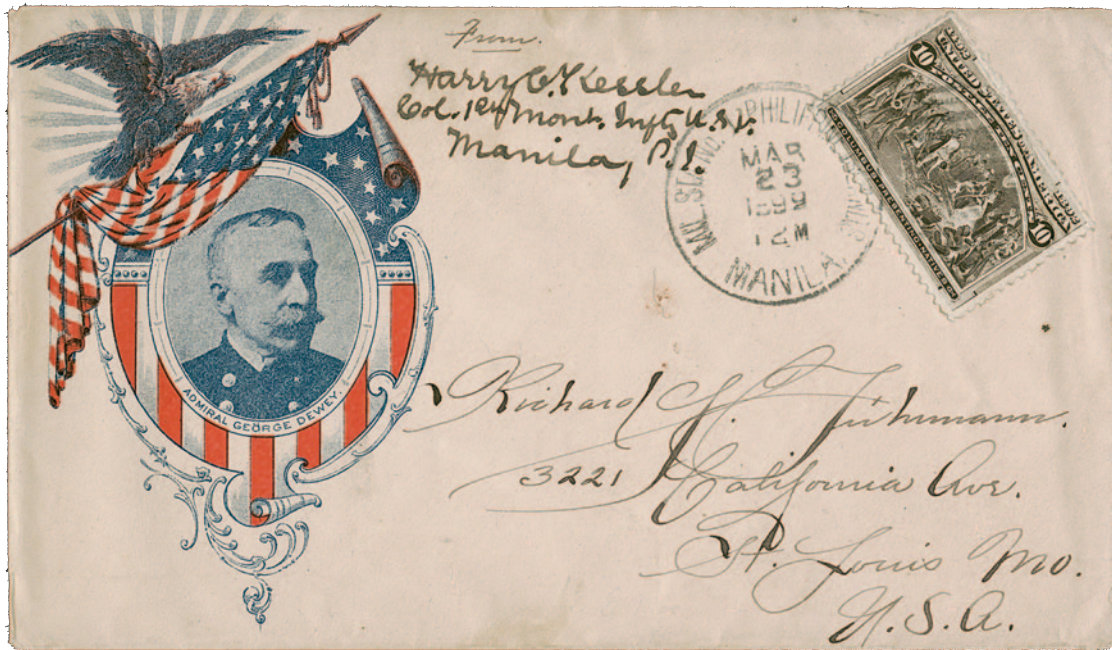 From.
Harry C. Kessler
Col. 1st Mont. Inf'y U.S.V.
Manila, P.I.
MIL. STA. NO. 1 PHILIPPINE
MAR
23
1899
12 M
MANILA.
10
UNITED STATES OF AMERICA
COLUMBUS PRESENTING NATIVES
10
ADMIRAL GEORGE DEWEY.
Richard H. Fuhrmann.
3221 California Ave.
St. Louis Mo.
U.S.A.